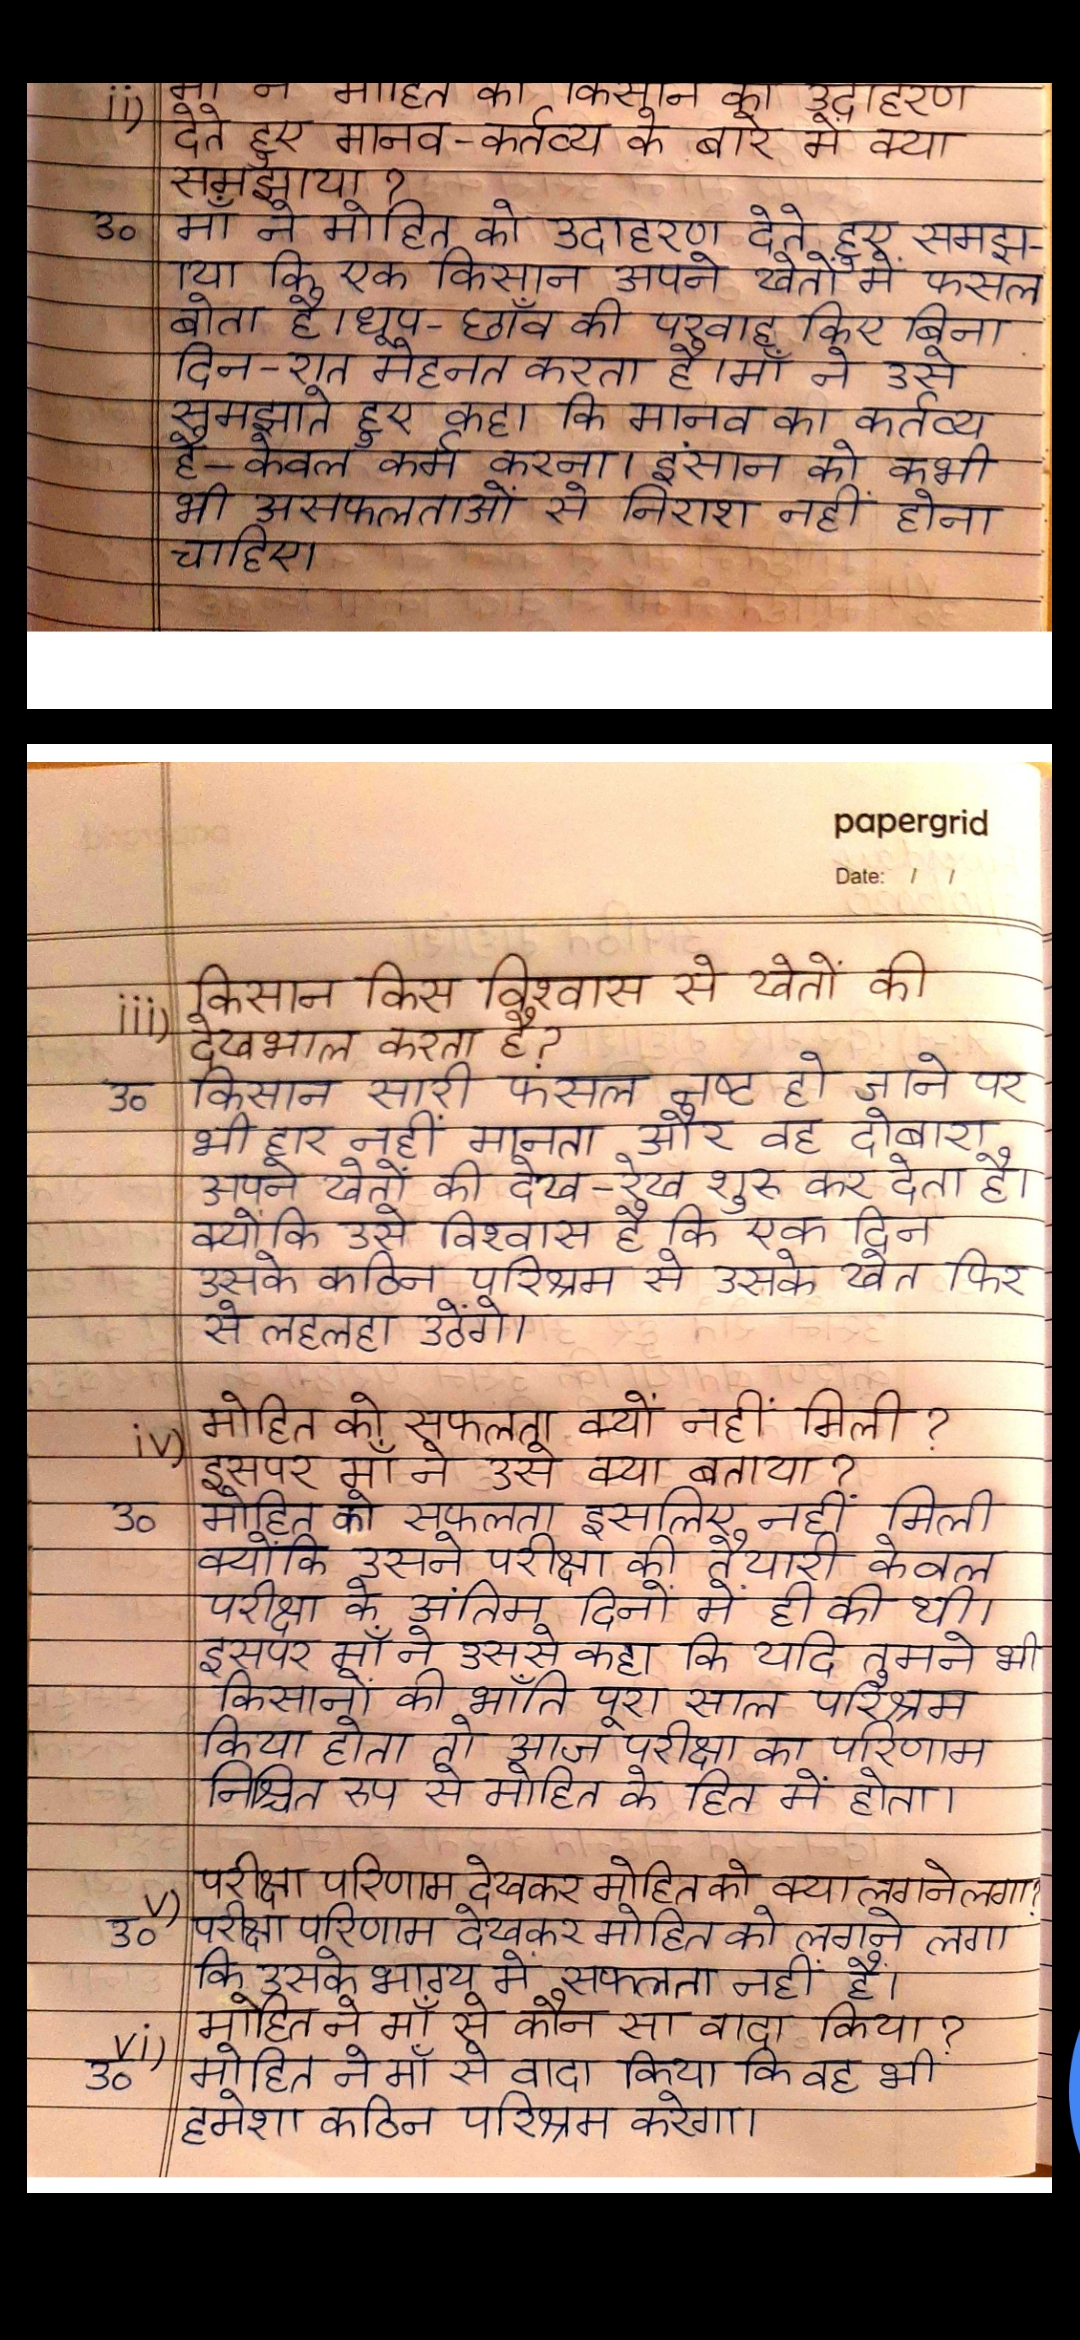 ii) माँ ने मोहित को किसान का उदाहरण
देते हुए मानव-कर्तव्य के बारे में क्या
समझाया ?
उ० माँ ने मोहित को उदाहरण देते हुए समझ-
ाया कि एक किसान अपने खेतों में फसल
बोता है। धूप-छाँव की परवाह किए बिना
दिन-रात मेहनत करता है। माँ ने उसे
समझाते हुए कहा कि मानव का कर्तव्य
है- केवल कर्म करना। इंसान को कभी
भी असफलताओं से निराश नहीं होना
चाहिए।
papergrid
Date: / /
iii) किसान किस विश्वास से खेतों की
देखभाल करता है?
उ० किसान सारी फसल नष्ट हो जाने पर
भी हार नहीं मानता और वह दोबारा
अपने खेतों की देख-रेख शुरु कर देता है।
क्योंकि उसे विश्वास है कि एक दिन
उसके कठिन परिश्रम से उसके खेत फिर
से लहलहा उठेंगे।
iv) मोहित को सफलता क्यों नहीं मिली ?
इसपर माँ ने उसे क्या बताया ?
उ० मोहित को सफलता इसलिए नहीं मिली
क्योंकि उसने परीक्षा की तैयारी केवल
परीक्षा के अंतिम दिनों में ही की थी।
इसपर माँ ने उससे कहा कि यदि तुमने भी
किसानों की भाँति पूरा साल परिश्रम
किया होता तो आज परीक्षा का परिणाम
निश्चित रुप से मोहित के हित में होता।
v) परीक्षा परिणाम देखकर मोहित को क्या लगने लगा?
उ० परीक्षा परिणाम देखकर मोहित को लगने लगा
कि उसके भाग्य में सफलता नहीं हैं।
vi) मोहित ने माँ से कौन सा वादा किया ?
उ० मोहित ने माँ से वादा किया कि वह भी
हमेशा कठिन परिश्रम करेगा।